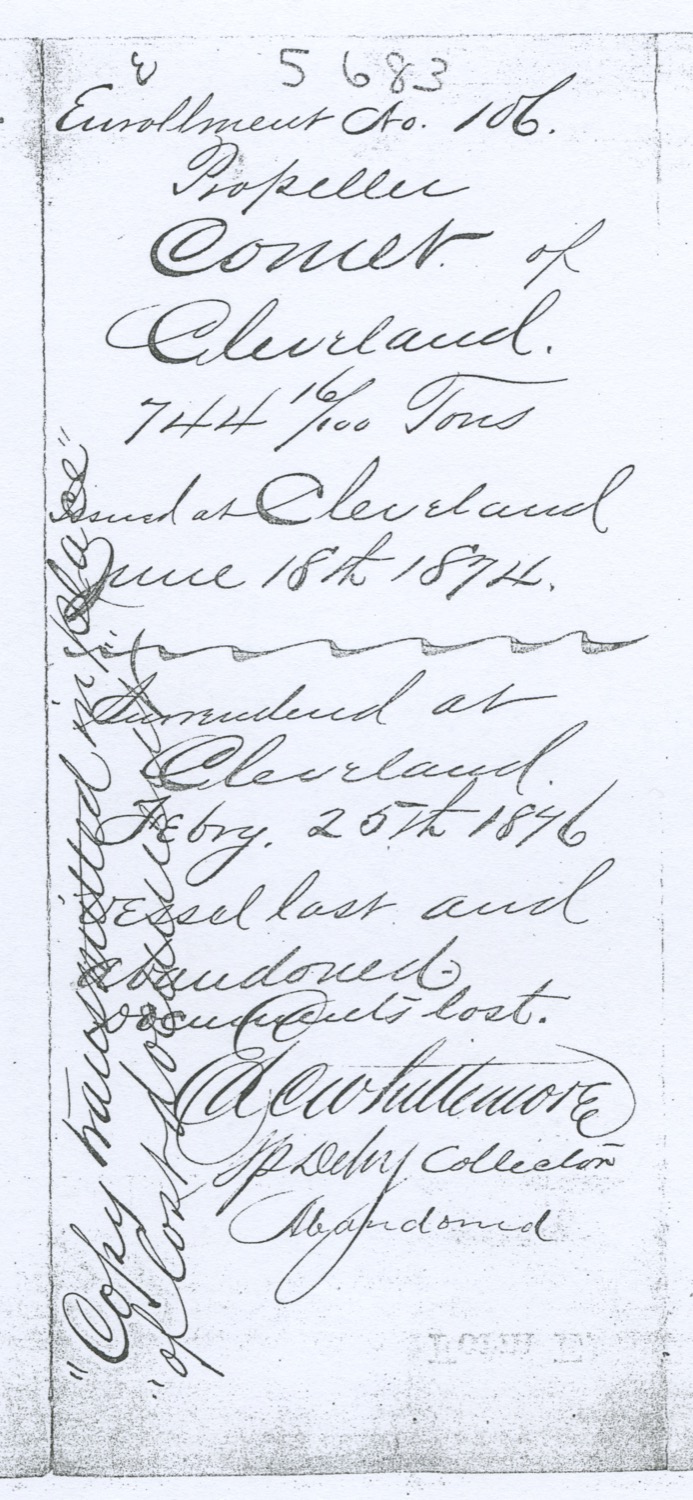 5683
Enrollment No. 106.
Propeller
Comet of
Cleveland.
744 16/100 Tons
Issued at Cleveland
June 18th 1874.
Surrendered at
Cleveland.
Febry. 25th 1876
Vessel lost and
abandoned.
Documents lost.
Whittemore
Sp Depy Collector
Abandoned
"Copy transmitted in place"
"of Lost document"